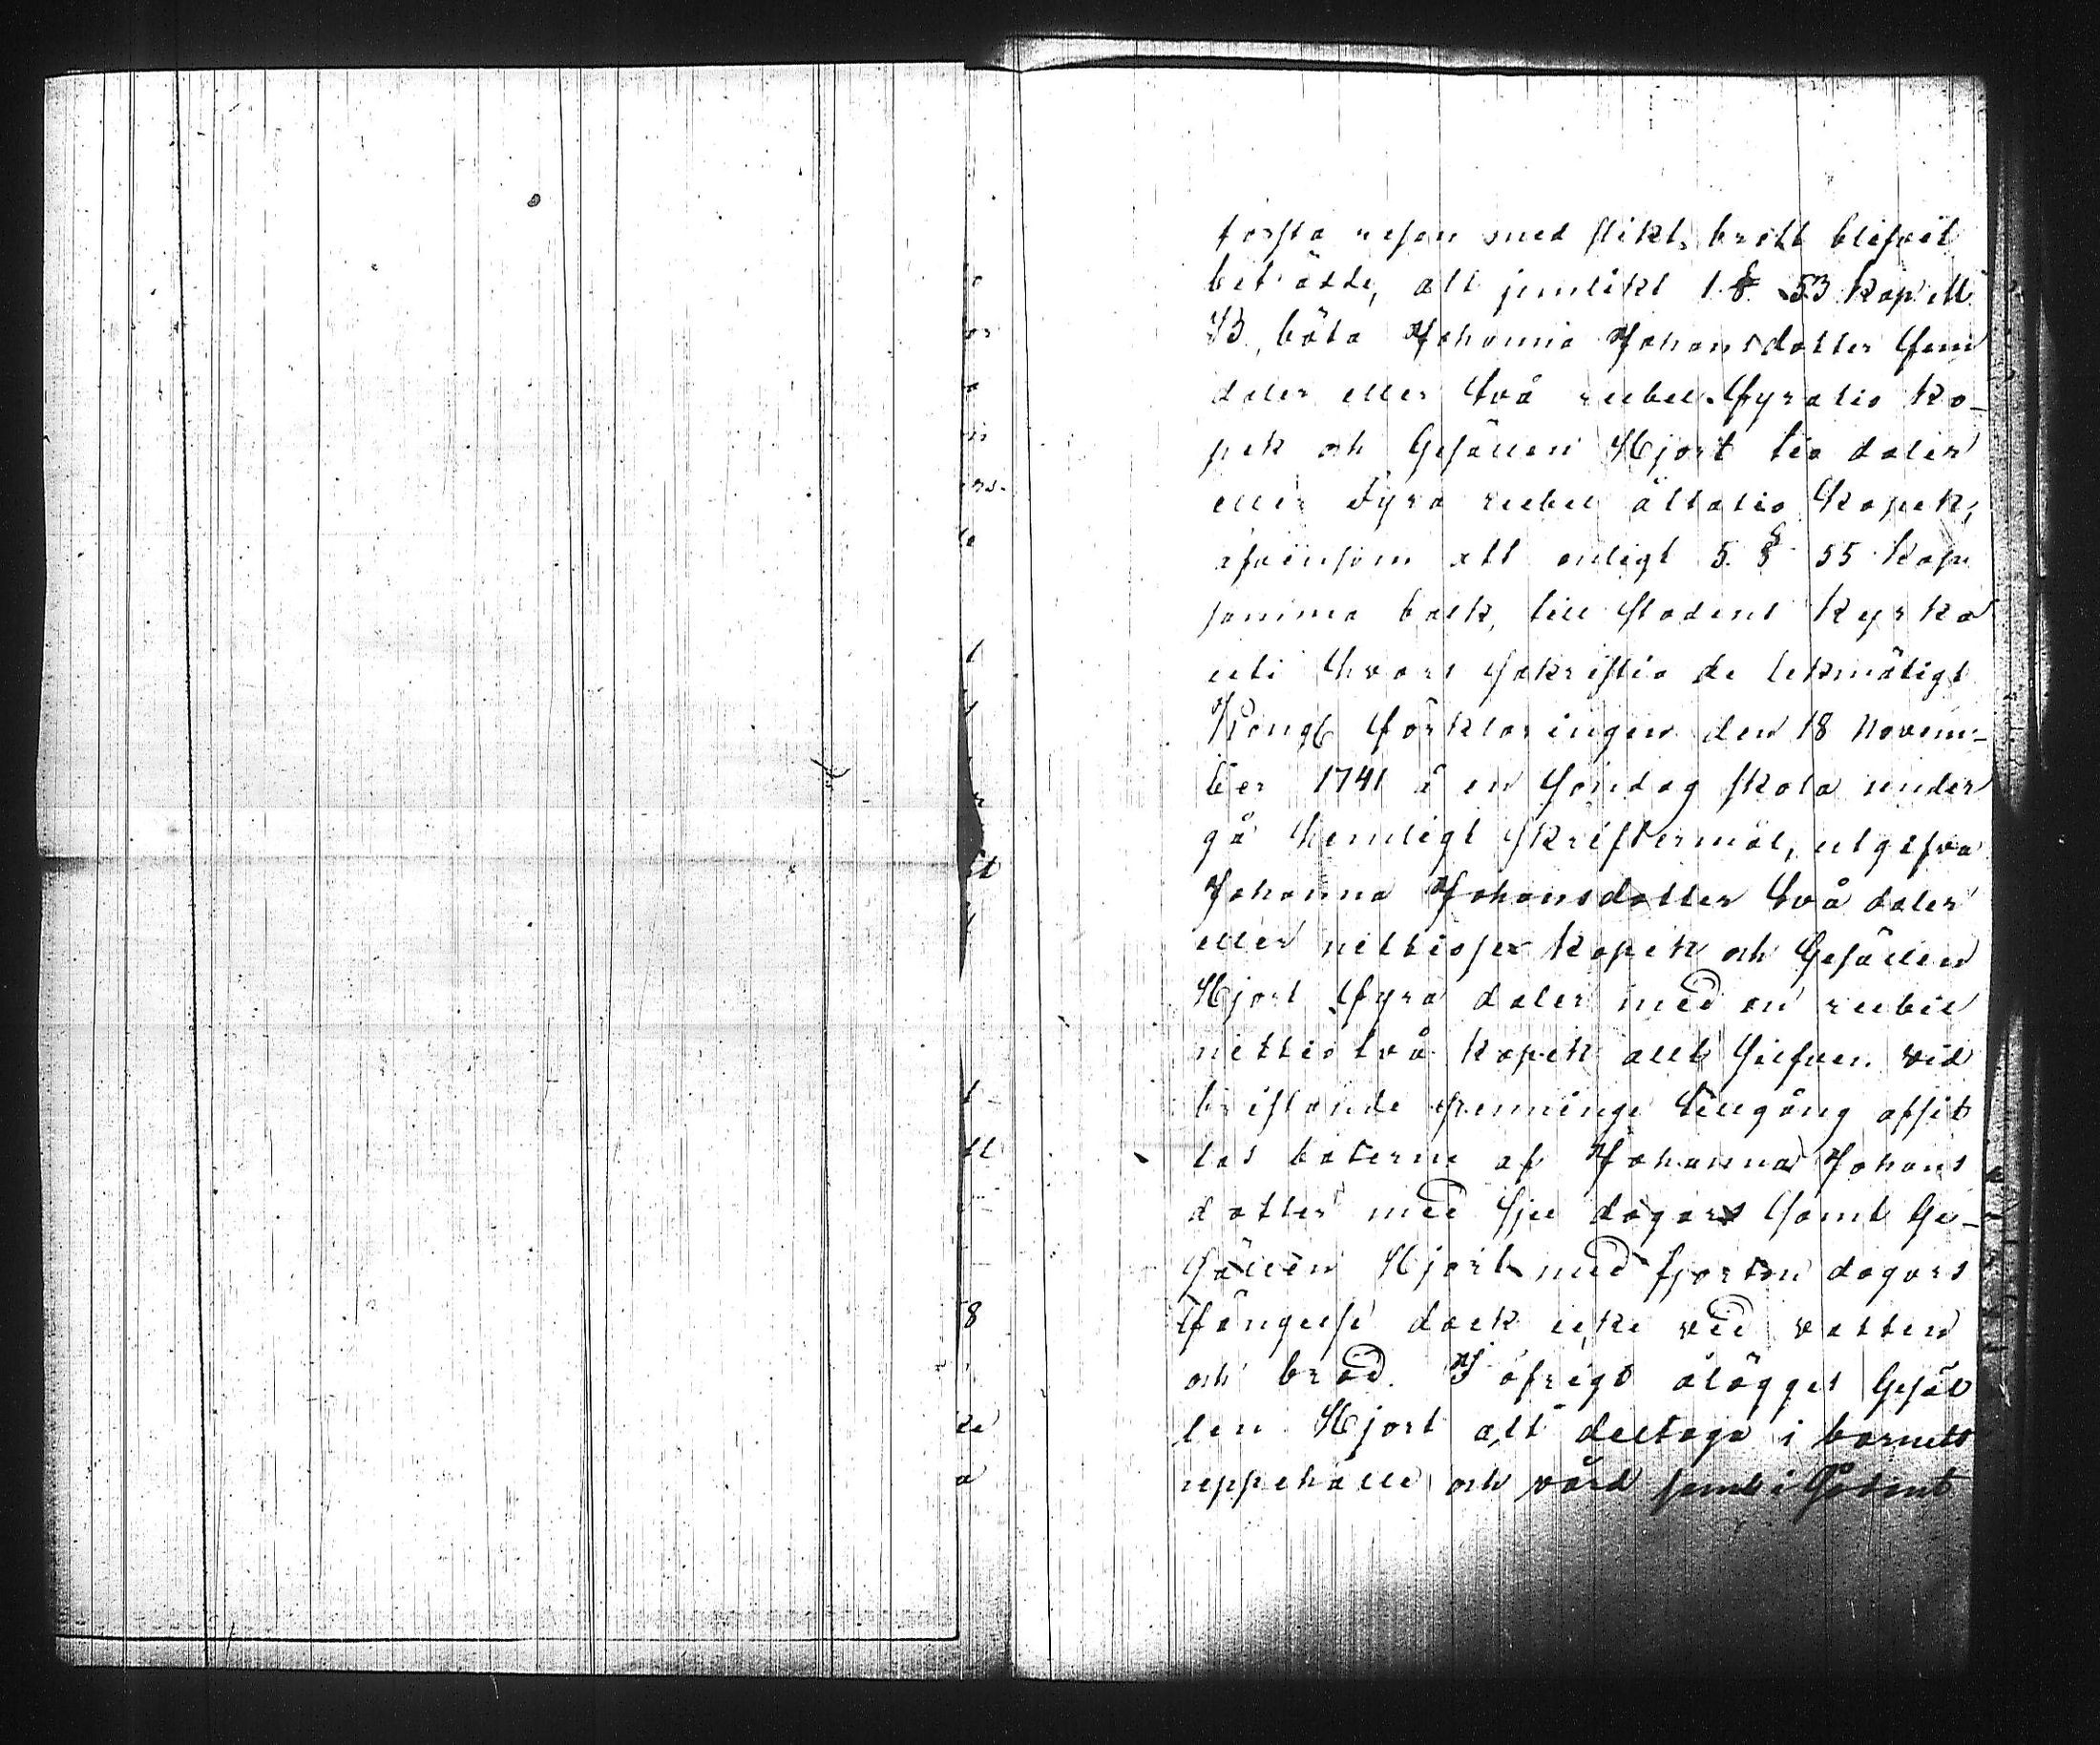 första resan med slikt brott blifvit
beträdde, att jemlikt 1 § 53 Kap. M
B, böta Johanna Johansdotter fem
daler eller två rubel fyratio ko-
pek och Gesällen Hjort tio daler
eller fyra rubel åttatio kopek,
äfvensom att enligt 5 § 55 Kap
samma balk, till stadens kyrka
uti hvars sakristia de likmätigt
Kongl förklaringen den 18 Novem-
ber 1741 å en söndag skola under
gå hemligt skriftermål, utgifva
Johanna Johansdotter två daler
eller nittiosex kopek och Gesällen
Hjort fyra daler med en rubel
nittiotvå kopek allt silfver. Vid
bristande penninge tillgång afsit
tas böterne af Johanna Johans
dotter med sju dagars samt Ge-
sällen Hjort med fjorton dagars
fängelse dock icke vid vatten
och bröd. I öfrigt ålägges Gesäl
len Hjort att deltaga i barnets
uppehälle och vård samt i
8